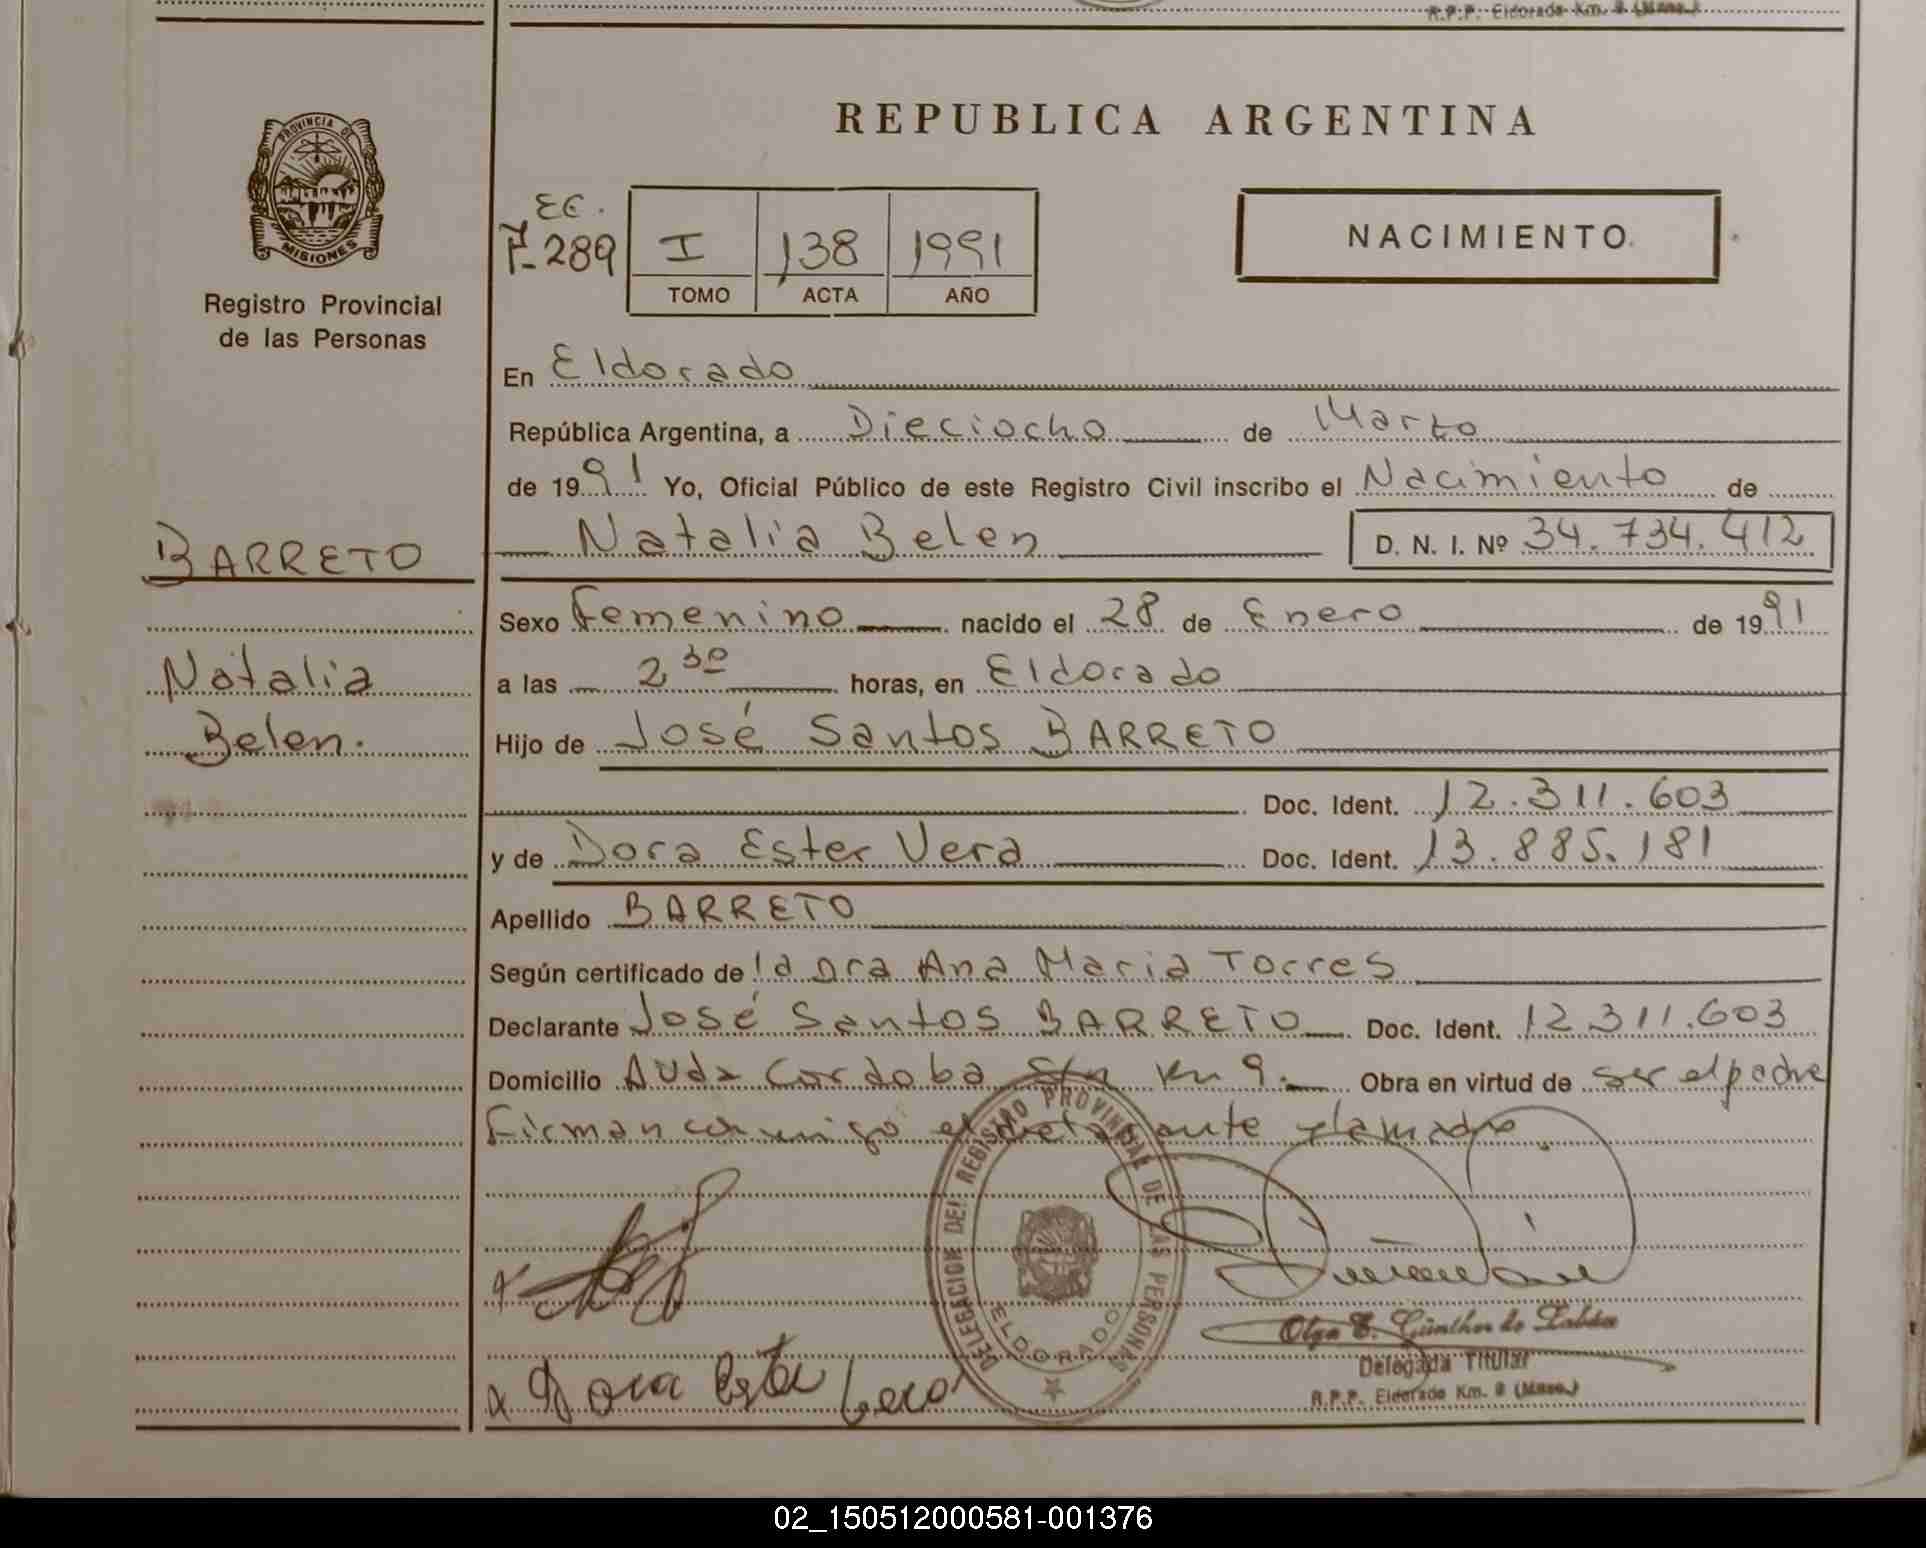 R.P.P. Eldorado Km. 9 (Mnes.)
PROVINCIA DE
MISIONES
Registro Provincial
de las Personas
REPUBLICA ARGENTINA
NACIMIENTO
F-289
I 138 1991
TOMO ACTA AÑO
En Eldorado
República Argentina, a Dieciocho de Marzo
de 1991 Yo, Oficial Público de este Registro Civil inscribo el Nacimiento de
Natalia Belen D. N. I. Nº 34.734.412
BARRETO
Natalia
Belen.
Sexo Femenino nacido el 28 de Enero de 1991
a las 2 30 horas, en Eldorado
Hijo de José Santos BARRETO
Doc. Ident. 12.311.603
y de Dora Ester Vera Doc. Ident. 13.885.181
Apellido BARRETO
Según certificado de la Dra Ana Maria Torres
Declarante José Santos BARRETO Doc. Ident. 12311.603
Domicilio Avda Cordoba S/n Km 9. Obra en virtud de ser el padre
Firman conmigo el declarante y la madre.
DELEGACION DEL REGISTRO PROVINCIAL DE LAS PERSONAS
ELDORADO
Dora Ester Vera
Delegada Titular
R.P.P. Eldorado Km. 9 (Mnes.)
02_150512000581-001376